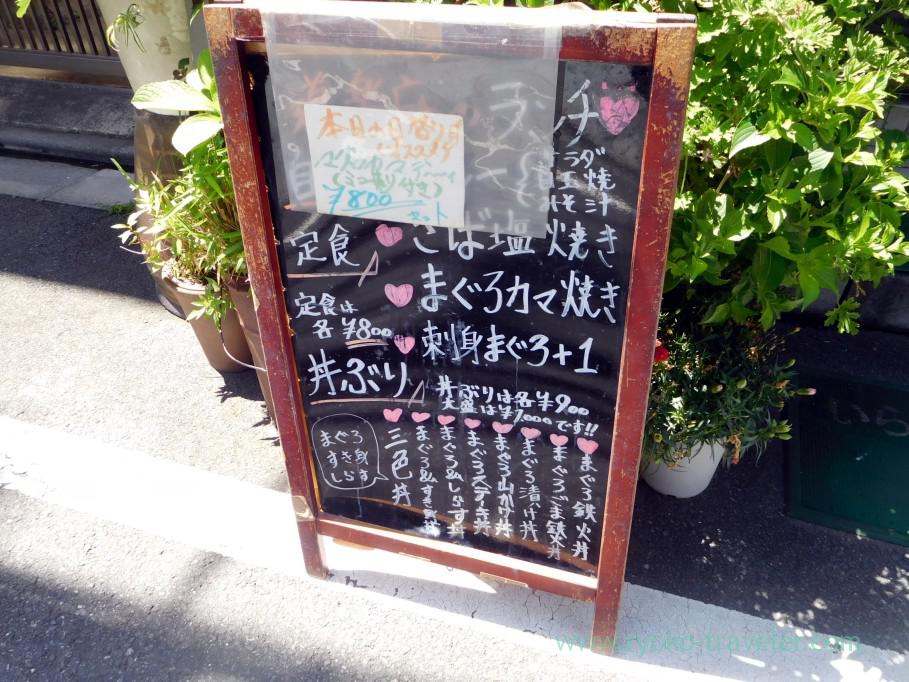 ランチ
サラダ
玉焼
みそ汁
本日の日替り
オススメ
¥800
セット
定食
さば塩焼き
まぐろカマ焼き
刺身まぐろ+1
定食は
各¥800
丼ぶり
丼ぶりは各¥900
大盛は¥1,000です!!
まぐろ鉄火丼
まぐろごま鉄火丼
まぐろ漬け丼
まぐろ山かけ丼
まぐろステーキ丼
まぐろ&しらす丼
まぐろ&すき身丼
三色丼
まぐろ
すき身
しらす
www.ryoko-traveler.com